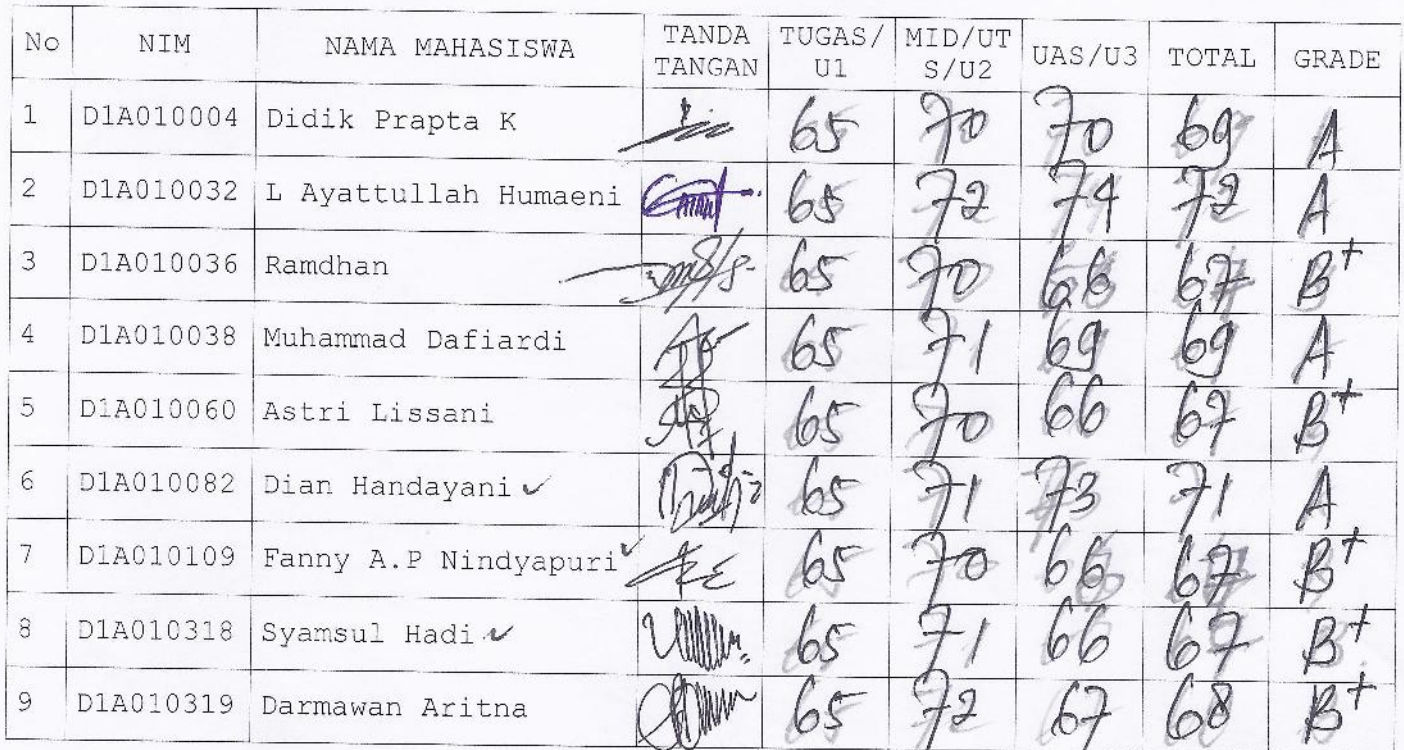 No NIM NAMA MAHASISWA TANDA TANGAN TUGAS/U1 MID/UTS/U2 UAS/U3 TOTAL GRADE
1 D1A010004 Didik Prapta K 65 70 70 69 A
2 D1A010032 L Ayattullah Humaeni 65 72 74 72 A
3 D1A010036 Ramdhan 65 70 66 67 B+
4 D1A010038 Muhammad Dafiardi 65 71 69 69 A
5 D1A010060 Astri Lissani 65 70 66 67 B+
6 D1A010082 Dian Handayani ✓ 65 71 73 71 A
7 D1A010109 Fanny A.P Nindyapuri ✓ 65 70 66 67 B+
8 D1A010318 Syamsul Hadi ✓ 65 71 66 67 B+
9 D1A010319 Darmawan Aritna 65 72 67 68 B+